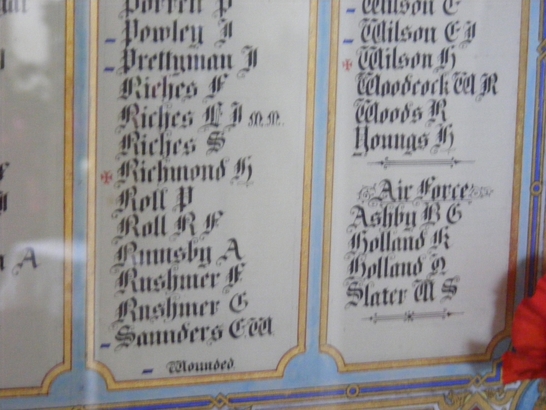 Powley J
Prettyman J
Riches F
Riches E J M.M.
Riches S
Richmond H
Roll P
Roll R F
Rumsby A
Rushmer F
Rushmer G
Saunders E.W.
Wounded
Wilson E
Wilson E J
Wilson H
Woodcock W R
Woods R
Youngs H
Air Force
Ashby B G
Holland K
Holland
Slater W S